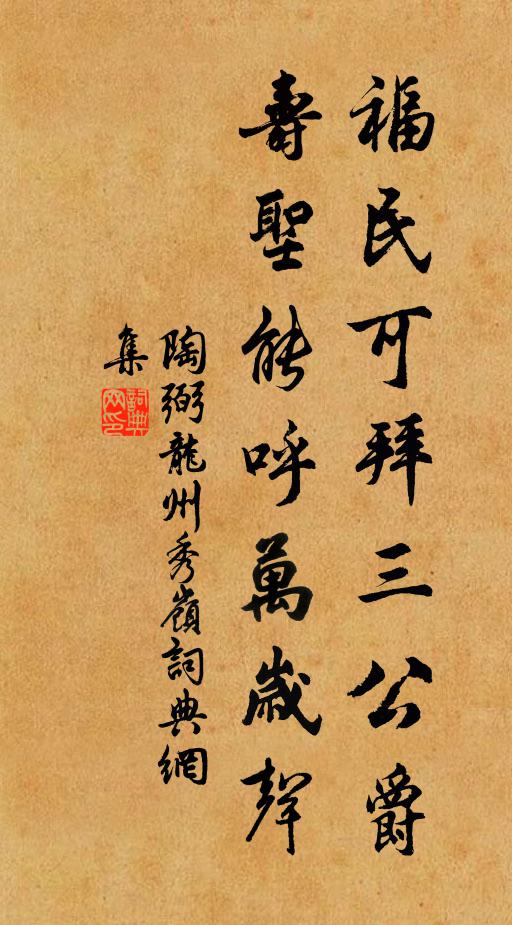 福民可拜三公爵
壽聖能呼萬歲聲
陶弼龍州秀嶺詞典網
集
詞典网印